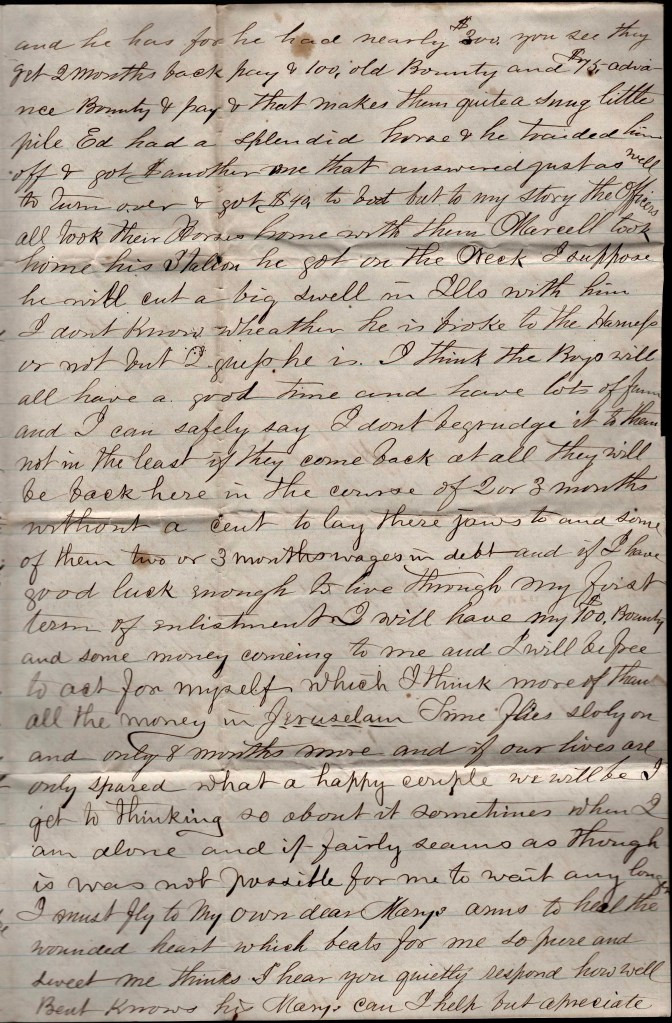 and he has for he had nearly $300, you see they
get 2 months back pay & 100, old Bounty and $75, adva-
nce Bounty & pay & that makes them quite a snug little
pile Ed had a splendid horse & he traided him
off & got $ another one that answered just as well
to turn over & got $40, to bot but to my story the Officers
all took their Horses home with them Marcell took
home his Stalion he got on the Neck I suppose
he will cut a big swell in Ills with him
I dont Know wheather he is broke to the Harness
or not but I guess he is. I think the Boys will
all have a good time and have lots of funn
and I can safely say I dont begrudge it to them
not in the least if they come back at all they will
be back here in the course of 2 or 3 months
without a cent to lay there jaws to and some
of them two or 3 months wages in debt and if I have
good luck enough to live through my first
term of enlistment I will have my $100, Bounty
and some money comeing to me and I will be free
to act for myself which I think more of than
all the money in Jeruselam Time flies sloly on
and only 8 months more and if our lives are
only spared what a happy couple we will be I
get to thinking so about it sometimes when I
am alone and it fairly seams as though
is was not possible for me to wait any longer
I must fly to my own dear Marys arms to heal the
wounded heart which beats for me so pure and
sweet me thinks I hear you quietly respond how well
Bent Knows his Mary can I help but apreciate